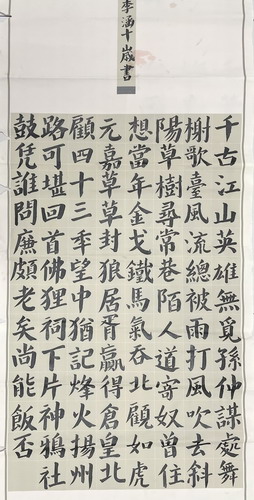 李涵十歲書
千古江山英雄無覓孫仲謀處舞
榭歌臺風流總被雨打風吹去斜
陽草樹尋常巷陌人道寄奴曾住
想當年金戈鐵馬氣吞北顧如虎
元嘉草草封狼居胥贏得倉皇北
顧四十三秊望中猶記烽火揚州
路可堪回首佛狸祠下片神鴉社
鼓凭誰問廉頗老矣尚能飯否